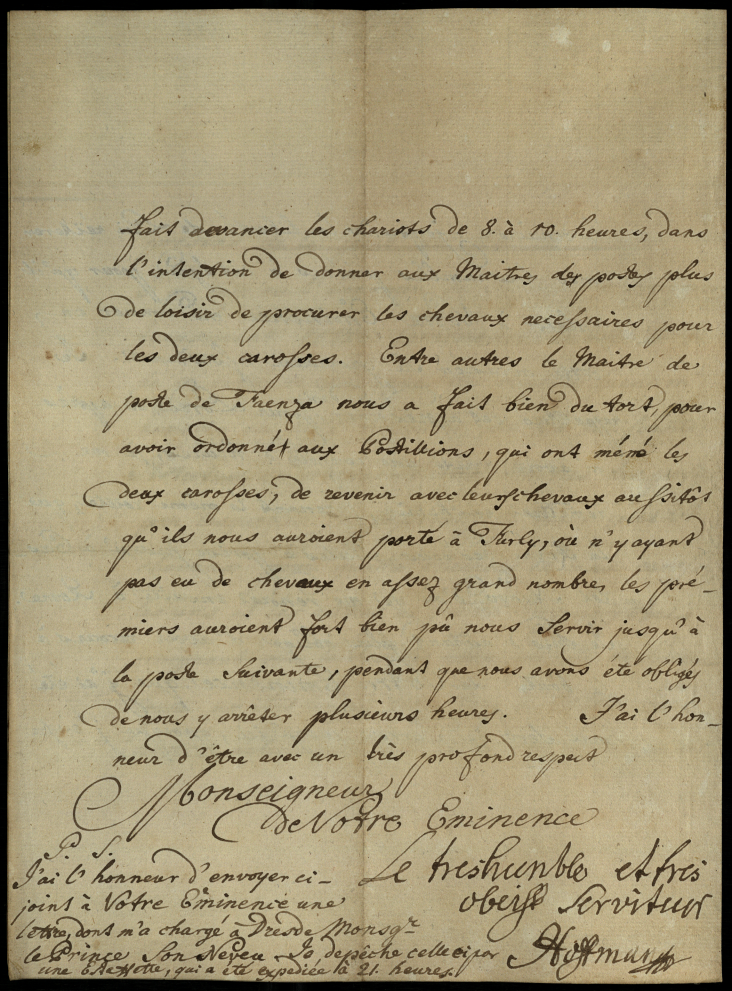 fait devancer les chariots de 8. à 10. heures, dans
l'intention de donner aux Maitres des postes plus
de loisir de procurer les chevaux necessaires pour
les deux carosses. Entre autres le Maitre de
poste de Faenza nous a fait bien du tort, pour
avoir ordonné aux Postillions, qui ont méné les
deux carosses, de revenir avec leurs chevaux aussitôt
qu'ils nous auroient porté à Furly, où n'y ayant
pas eu de chevaux en assez grand nombre, les pré-
miers auroient fort bien pû nous servir jusqu'à
la poste suivante, pendant que nous avons été obligés
de nous y arrêter plusieurs heures. J'ai l'hon-
neur d'être avec un très profond respect
Monseigneur
de Votre Eminence
Le treshumble et tres
obeisst Serviteur
Hoffmann
P. S.
J'ai l'honneur d'envoyer ci-
joint à Votre Eminence une
lettre, dont m'a chargé à Dresde Monsgr.
le Prince Son Neveu. Je depêche celle ci par
une Estaffette, qui a été expediée là 21. heures.